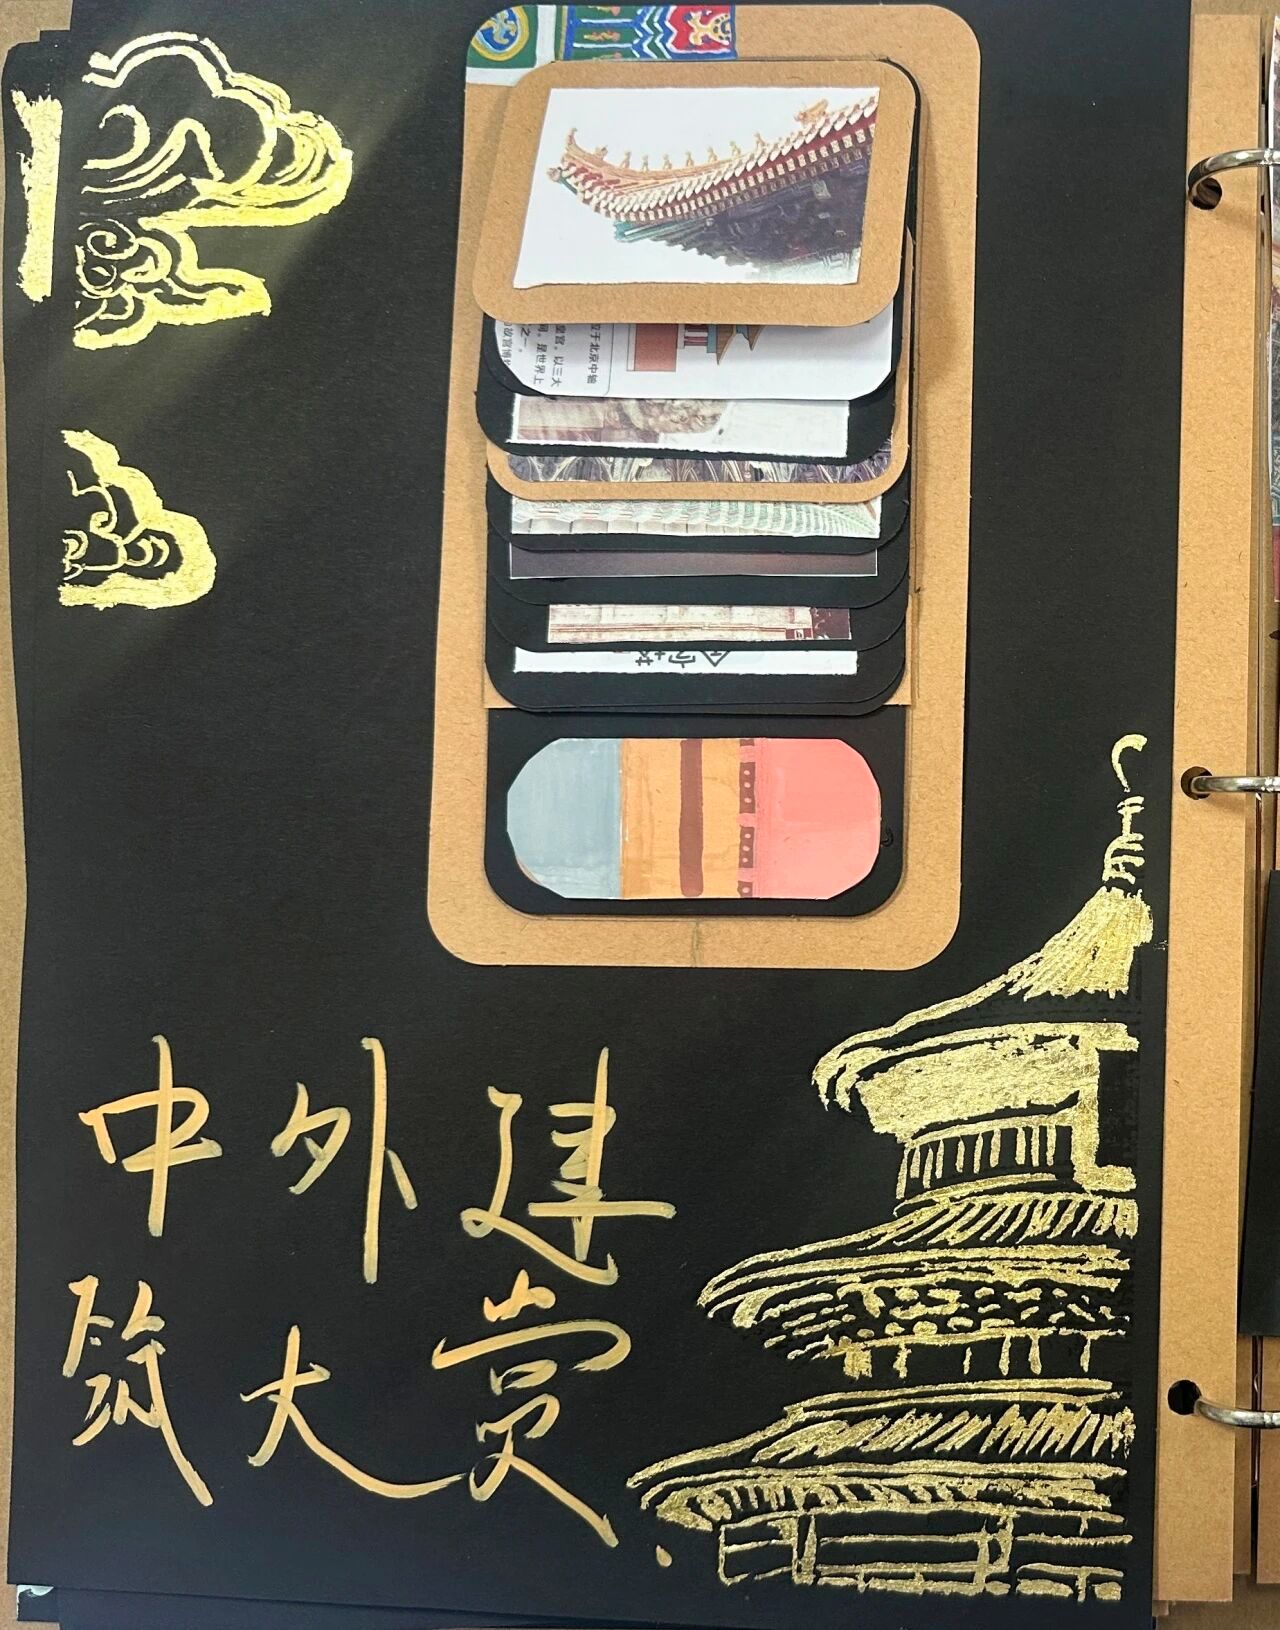 于北京中轴
皇宫，以三大
间。是世界上
之一。
故宫博
中外建
筑大赏